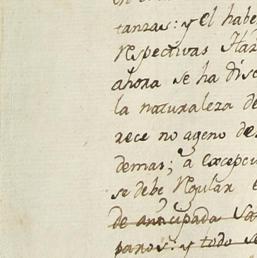 tanzas: y el habe
respectivas Haz
ahora se ha disc
la naturaleza de
rece no ageno de
demas; à excepci
se debe regular e
de anticipada sa
panos: y todo se